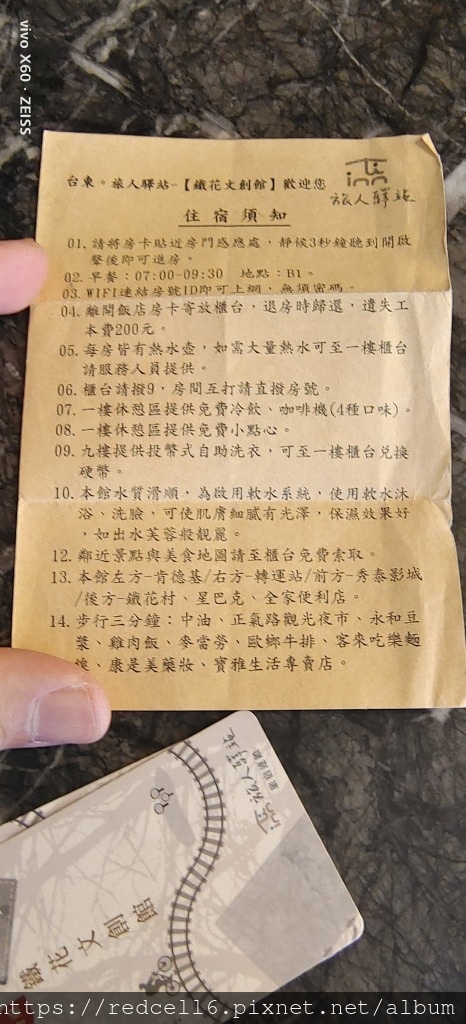 vivo X60 · ZEISS
台東。旅人驛站-【鐵花文創館】歡迎您
inn
旅人驛站
住宿須知
01. 請將房卡貼近房門感應處，靜候3秒鐘聽到開啟
聲後即可進房。
02. 早餐：07:00-09:30 地點：B1。
03. WIFI連結房號ID即可上網，無須密碼。
04. 離開飯店房卡寄放櫃台，退房時歸還，遺失工
本費200元。
05. 每房皆有熱水壺，如需大量熱水可至一樓櫃台
請服務人員提供。
06. 櫃台請撥9，房間互打請直撥房號。
07. 一樓休憩區提供免費冷飲、咖啡機(4種口味)。
08. 一樓休憩區提供免費小點心。
09. 九樓提供投幣式自助洗衣，可至一樓櫃台兌換
硬幣。
10. 本館水質滑順，為啟用軟水系統，使用軟水沐
浴、洗臉，可使肌膚細膩有光澤，保濕效果好
，如出水芙蓉般靚麗。
12. 鄰近景點與美食地圖請至櫃台免費索取。
13. 本館左方-肯德基/右方-轉運站/前方-秀泰影城
/後方-鐵花村、星巴克、全家便利店。
14. 步行三分鐘：中油、正氣路觀光夜市、永和豆
漿、雞肉飯、麥當勞、歐鄉牛排、客來吃樂麵
、康是美藥妝、寶雅生活專賣店。
inn
旅人驛站
鐵花文創館
https://redcell6.pixnet.net/album